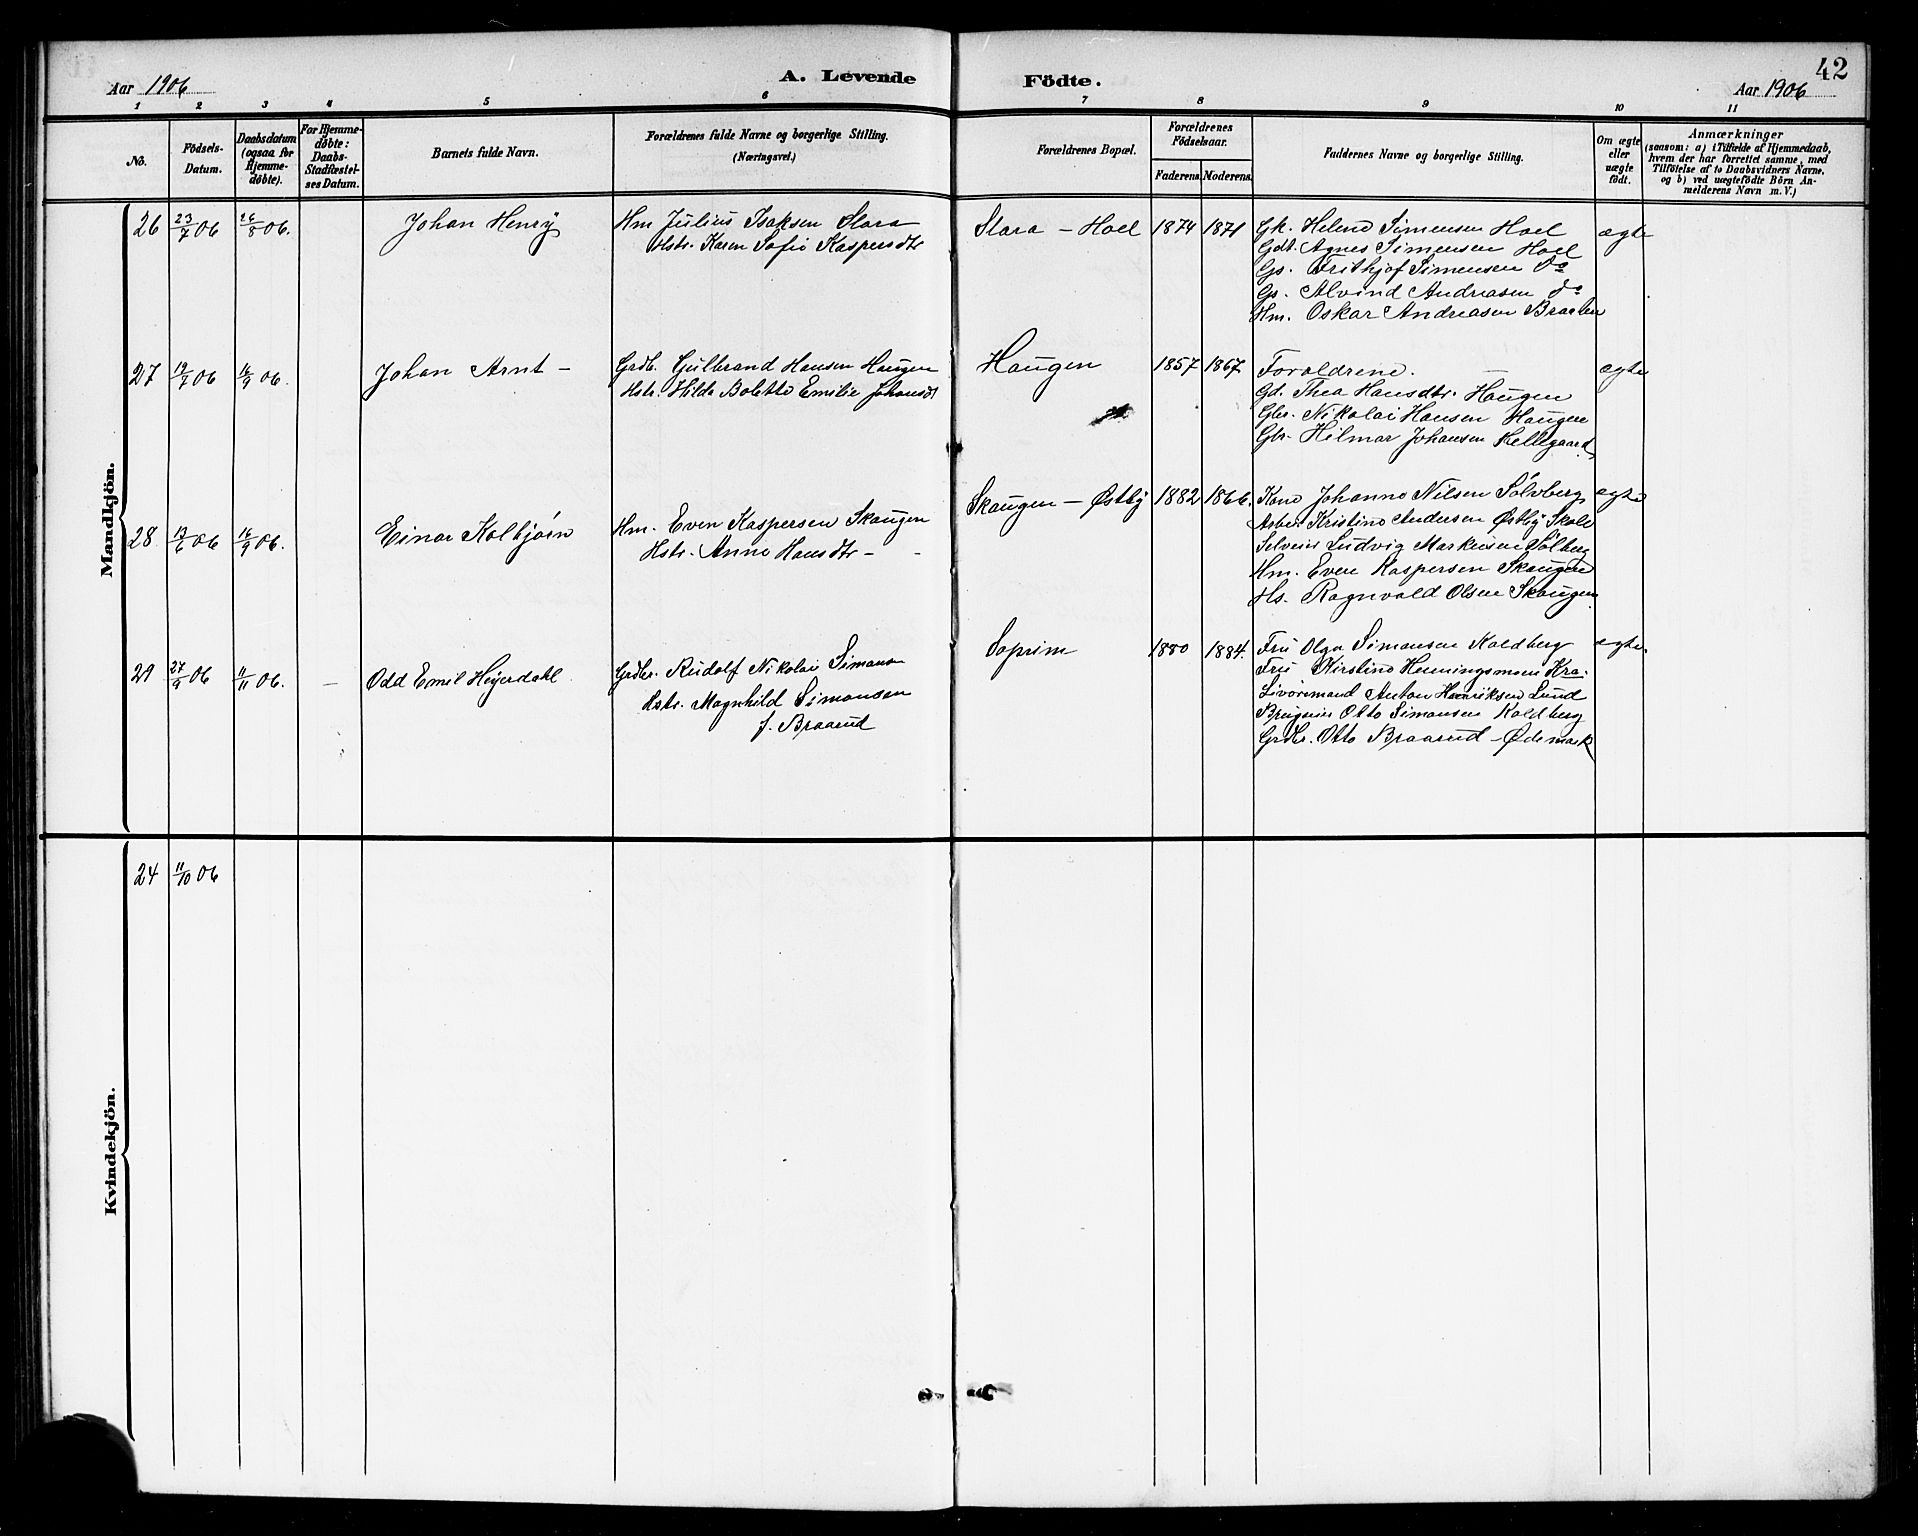 42
Aar 1906
A. Levende
Födte.
Aar 1906
1 2 3 4 5 6 7 8 9 10 11
No.
Födsels-
Datum.
Daabsdatum
(ogsaa for
Hjemme-
döbte).
For Hjemme-
döbte:
Daabs-
Stadfæstel-
ses Datum.
Barnets fulde Navn.
Forældrenes fulde Navne og borgerlige Stilling.
(Næringsvei.)
Forældrenes Bopæl.
Forældrenes
Födselsaar.
Faderens.
Moderens.
Faddernes Navne og borgerlige Stilling.
Om ægte
eller
uægte
födt.
Anmærkninger
(saasom: a) i Tilfælde af Hjemmedaab,
hvem der har forrettet samme, med
Tilföielse af to Daabsvidners Navne,
og b) ved uægtefödte Börn An-
melderens Navn m. V.)
Mandkjön.
26 23/7 06 26/8 06.
Johan Henry
Hm Julius Isaksen Slora
Hstr. Karen Sofie Kaspersdtr
Slora - Hoel
1874 1871
Gk. Helene Simensen Hoel
Gdt. Agnes Simensen Hoel
Gs. Frithjof Simensen do
Gs. Alvind Andreasen do
Hm. Oskar Andreasen Braaten
ægte
27 06 16/9 06.
Johan Arnt -
Grdb. Gulbrand Hansen Haugen
Hstr. Hilda Bolette Emilie Johansdt
Haugen
1857 1867
Foraldrene. -
Gd. Thea Hansdtr. Haugen
Gbr. Nikolai Hansen Haugen
Gbr. Hilmar Johansen Kellegaard
ægte
28 06 16/9 06.
Einar Kolbjørn
Hm. Even Kaspersen Skaugen
Hstr. Anne Hansdtr - -
Skaugen - Østby
1882 1866.
Kone Johanne Nilsen Sólvberg
Kristine Andersen Østby Skole
Ludvig Markusen Sólberg
Hm. Even Kaspersen Skaugen
Hs. Ragnvald Olsen Skaugen
ægte
29 27/9 06 11/11 06. -
Odd Emil Heyerdahl
Grdbr. Rudolf Nikolai Simons
Hstr. Magnhild Simonsen
f. Braarud
Soprim
1880 1884.
Fru Olga Simonsen Koldberg
Fru Kirstine Henningsmoen Kra.
Anton Henriksen Lund
Otto Simonsen Koldberg
Grdbr. Otto Braarud - Ødemark
ægte.
Kvindekjön.
24 11/10 06